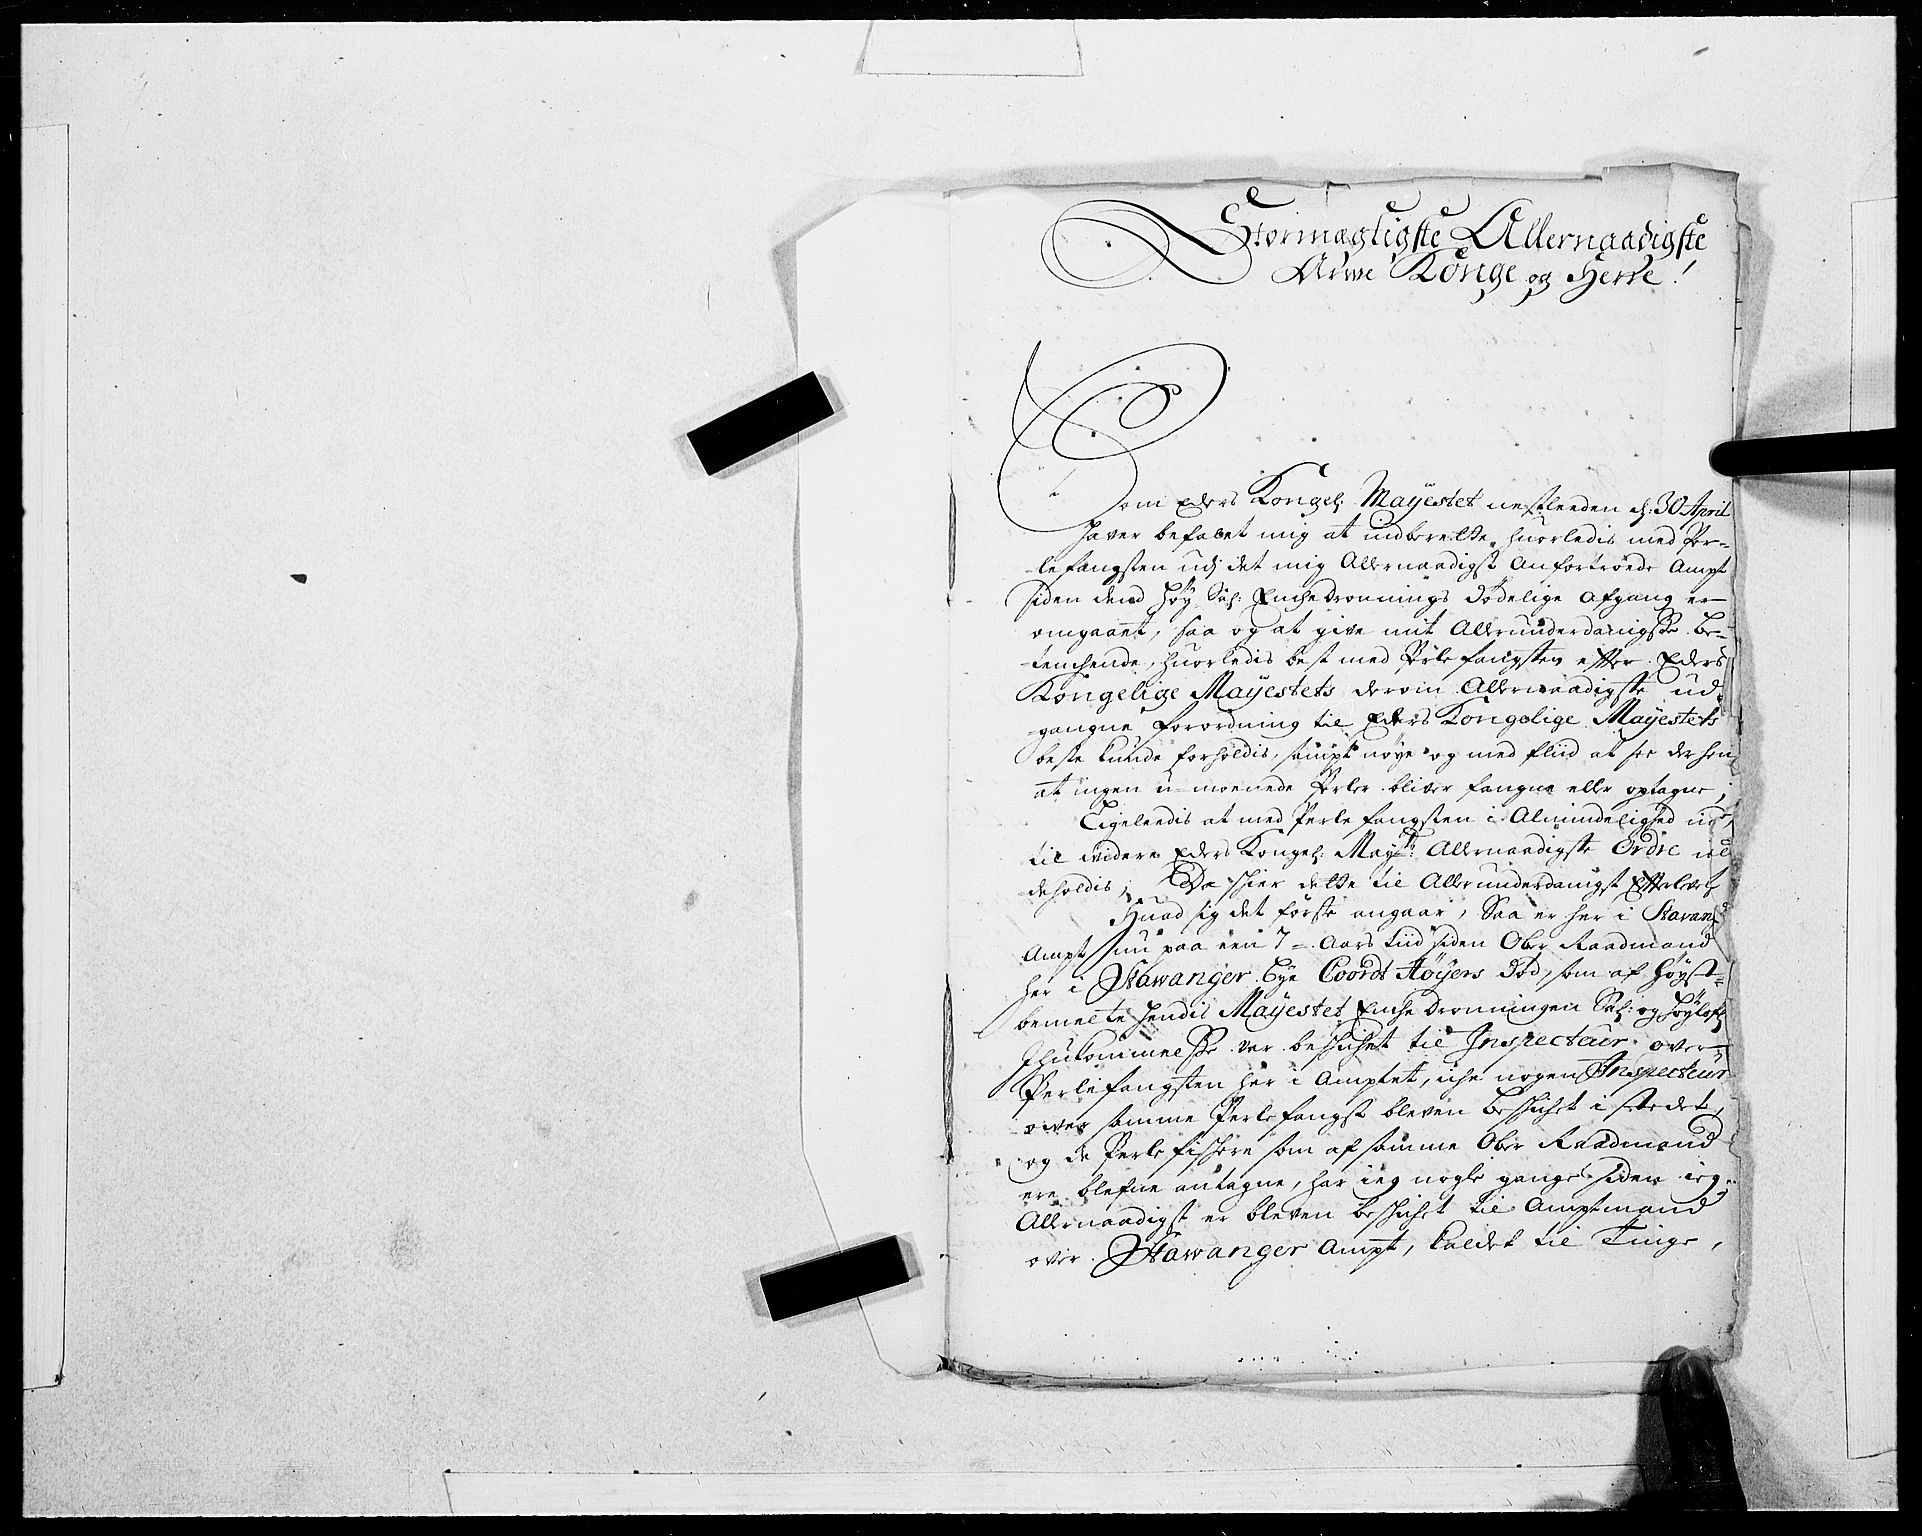 Stormægtigste Allernaadigste
Arwe Konge og Herre!
Som Eders Kongel: Mayestet nestleeden d: 30 April
haver befalet mig at indberette, huorledis med Per-
lefangsten udj det mig Allernaadigst Anfortroede Ampt
siden dend Høy Sal: Enchedronnings Dødelige Afgang er
omgaaet, saa og at give mit Allerunderdanigste be-
tenchende, huorledis best med Perlefangsten effter Eders
Kongelige Mayestets derom Allernaadigste ud-
gangne forordning til Eders Kongelige Mayestets
beste kunde forholdis, sampt nøye og med fliid at see derhen
at ingen u-moenede Perler bliver fangne eller optagne;
Ligeleedis at med Perlefangsten i Almindelighed ud,
til widere Eders Kongel: Mayts: Allernaadigste Ordre in
deholdis; Da skier dette til Allerunderdanigst Efferlevels
Huad sig det første angaar, Saa er her i Stavang
Ampt nu paa een 7- Aars tiid siden Ober Raadmand
her i Stawanger bye Coordt Høyers død, som af høyst-
bemelte hendis Mayestet Enche Dronningen Sal: og høylofl
Ihukommelsse var beskichet til Inspecteur over
Perlefangsten her i Amptet, iche nogen Inspecteur
over samme Perlefangst bleven beskichet i stedet,
og de Perlefiskere som af samme Ober Raadmand
ere blefne antagne, har ieg nogle gange siden ieg
Allernaadigst er bleven beskichet til Amptmand
over Stawanger Ampt, kaldet til Tinge,